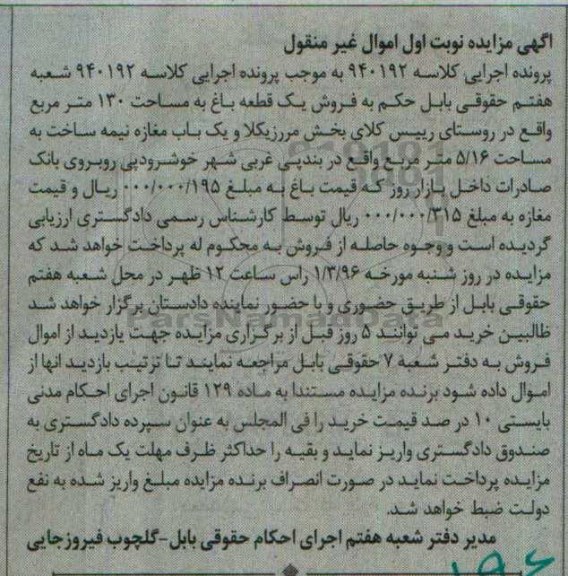 آگهی مزایده نوبت اول اموال غیر منقول
پرونده اجرایی کلاسه ۹۴۰۱۹۲ به موجب پرونده اجرایی کلاسه ۹۴۰۱۹۲ شعبه
هفتم حقوقی بابل حکم به فروش یک قطعه باغ به مساحت ۱۳۰ متر مربع
واقع در روستای رییس کلای بخش مرزیکلا و یک باب مغازه نیمه ساخت به
مساحت ۵/۱۶ متر مربع واقع در بندپی غربی شهر خوشرودپی روبروی بانک
صادرات داخل بازار روز که قیمت باغ به مبلغ ۰۰۰/۰۰۰/۱۹۵ ریال و قیمت
مغازه به مبلغ ۰۰۰/۰۰۰/۳۱۵ ریال توسط کارشناس رسمی دادگستری ارزیابی
گردیده است و وجوه حاصله از فروش به محکوم له پرداخت خواهد شد که
مزایده در روز شنبه مورخه ۱/۳/۹۶ راس ساعت ۱۲ ظهر در محل شعبه هفتم
حقوقی بابل از طریق حضوری و با حضور نماینده دادستان برگزار خواهد شد
طالبین خرید می توانند ۵ روز قبل از برگزاری مزایده جهت بازدید از اموال
فروش به دفتر شعبه ۷ حقوقی بابل مراجعه نمایند تا ترتیب بازدید انها از
اموال داده شود برنده مزایده مستندا به ماده ۱۲۹ قانون اجرای احکام مدنی
بایستی ۱۰ در صد قیمت خرید را فی المجلس به عنوان سپرده دادگستری به
صندوق دادگستری واریز نماید و بقیه را حداکثر ظرف مهلت یک ماه از تاریخ
مزایده پرداخت نماید در صورت انصراف برنده مزایده مبلغ واریز شده به نفع
دولت ضبط خواهد شد.
مدیر دفتر شعبه هفتم اجرای احکام حقوقی بابل-گلچوب فیروزجایی
ParsNamadData